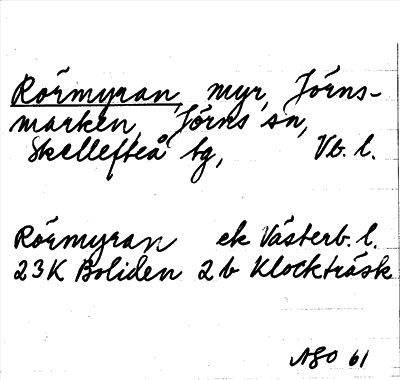 Rörmyran, myr, Jörns-
marken, Jörns sn,
Skellefteå tg, Vb. l.
Rörmyran ek Västerb. l.
23K Boliden 2b Klockträsk
ASO 61